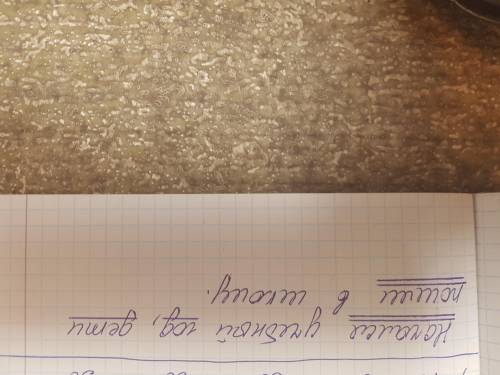 Начался учебный год, дети
пошли в школу.